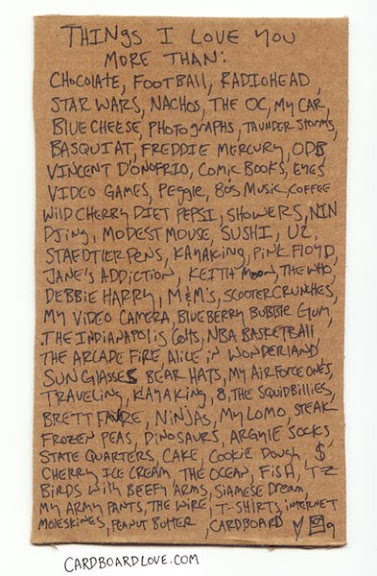 THINGS I LOVE YOU
MORE THAN:
CHOCOLATE, FOOTBALL, RADIOHEAD,
STAR WARS, NACHOS, THE OC, MY CAR,
BLUE CHEESE, PHOTOGRAPHS, THUNDER STORMS,
BASQUIAT, FREDDIE MERCURY, ODB
VINCENT D'ONOFRIO, COMIC BOOKS, EYES
VIDEO GAMES, PEGGIE, 80'S MUSIC, COFFEE
WILD CHERRY DIET PEPSI, SHOWERS, NIN
DJING, MODEST MOUSE, SUSHI, U2,
STAEDTLER PENS, KAYAKING, PINK FLOYD,
JANE'S ADDICTION, KEITH MOON, THE WHO,
DEBBIE HARRY, M&M'S, SCOOTER CRUNCHES,
MY VIDEO CAMERA, BLUEBERRY BUBBLE GUM,
THE INDIANAPOLIS COLTS, NBA BASKETBALL
THE ARCADE FIRE, ALICE IN WONDERLAND
SUNGLASSES BEAR HATS, MY AIR FORCE ONES,
TRAVELING, KAYAKING, 8, THE SQUIDBILLIES,
BRETT FAVRE, NINJAS, MY LOMO, STEAK
FROZEN PEAS, DINOSAURS, ARGYLE SOCKS
STATE QUARTERS, CAKE, COOKIE DOUGH, $
CHERRY ICE CREAM THE OCEAN, FISH,
BIRDS WITH BEEFY ARMS, SIAMESE DREAM,
MY ARMY PANTS, THE WIRE, T-SHIRTS, INTERNET
MOLESKINES, PEANUT BUTTER, CARDBOARD
CARDBOARDLOVE.COM